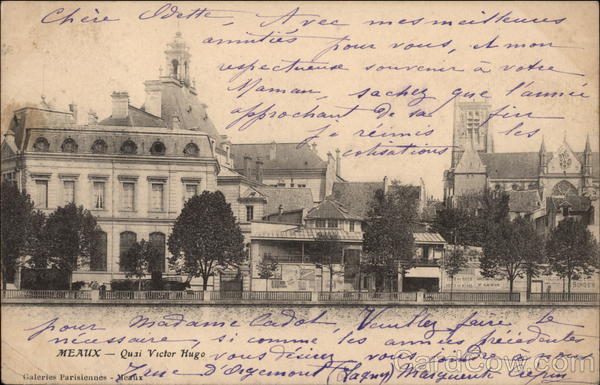 Chère Odette, Avec mes meilleures
amitiés pour vous, et mon
respectueux souvenir à votre
Maman, sachez que l'année
approchant de sa fin
je réunis les
cotisations
pour Madame Cadot, Veuillez faire le
nécessaire si comme les années précédentes
vous désirez vous
7 rue d'Orgemont (Lagny) Marguerite
MEAUX — Quai Victor Hugo
Galeries Parisiennes - Meaux
CardCow.com